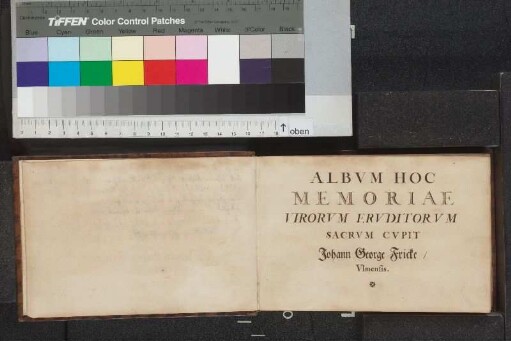 TIFFEN Color Control Patches
Blue Cyan Green Yellow Red Magenta White 3/Color Black
oben
ALBVM HOC
MEMORIAE
VIRORVM ERVDITORVM
SACRVM CVPIT
Johann George Fricke /
Vlmensis.